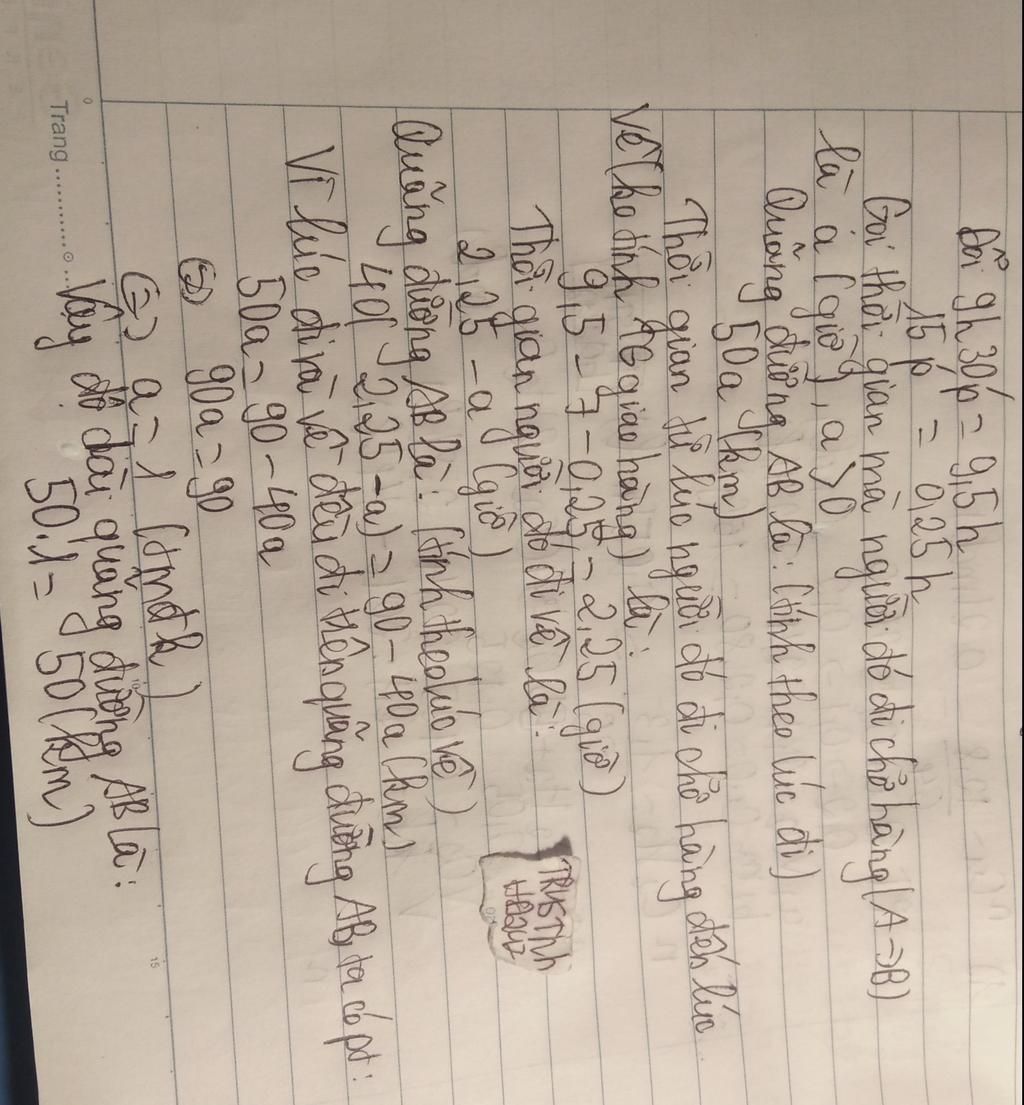 Đổi 9h30p = 9,5h
15p = 0,25h
Gọi thời gian mà người đó đi chở hàng (A->B)
là a (giờ), a > 0
Quãng đường AB là: (tính theo lúc đi)
50a (km)
Thời gian từ lúc người đó đi chở hàng đến lúc
về (ko tính TG giao hàng) là:
9,5 - 7 - 0,25 = 2,25 (giờ)
Thời gian người đó đi về là:
2,25 - a (giờ)
Quãng đường AB là: (tính theo lúc về)
40(2,25 - a) = 90 - 40a (km)
Vì lúc đi và về đều đi trên quãng đường AB, ta có pt:
50a = 90 - 40a
(=) 90a = 90
(=) a = 1 (tmđk)
Vậy độ dài quãng đường AB là:
50.1 = 50 (km)
Trang
0
15